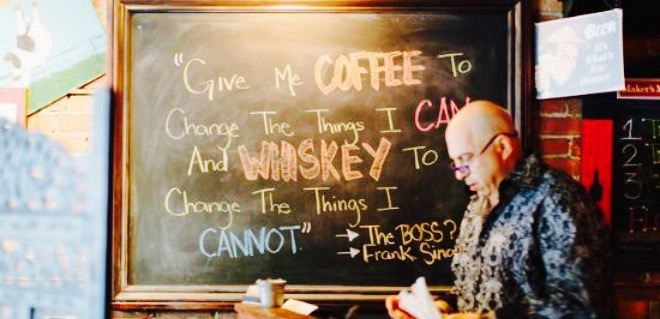 "Give Me COFFEE To
Change The Things I CAN
And WHISKEY To
Change The Things I
CANNOT."
→ The BOSS?
→ Frank
BEER
It's
What's
For
Dinner
Maker's
1
2
3